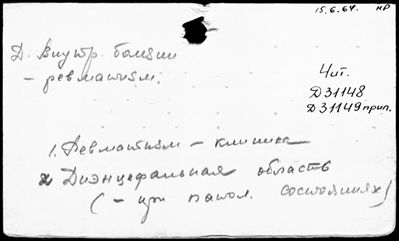 15.6.67. нр
Д. Внутр. болезни
- ревматизм.
Чит.
Д31148
Д31149 прил.
1. Ревматизм - клиника
2 Диэнцефальная область
(- при патол. состояниях)